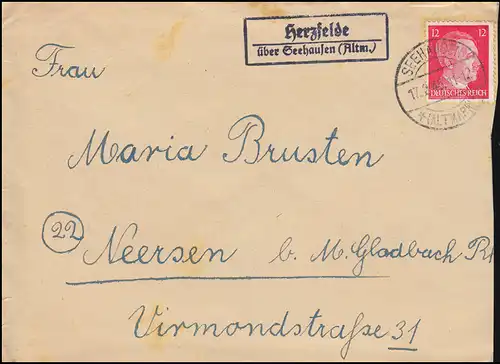 Herzfelde
über Seehausen (Altm.)
12 12
DEUTSCHES REICH
SEEHAUSEN
17.
* (ALTMARK)
Frau
Maria Brusten
22
Neersen b. M. Gladbach
Virmondstraße 31